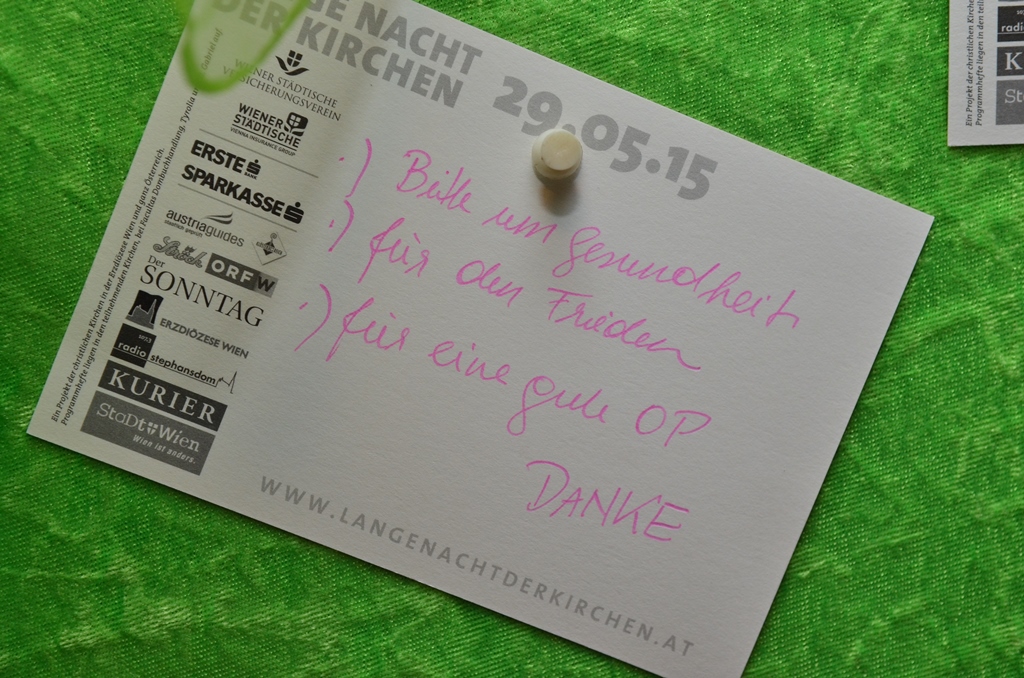 GE NACHT
DER KIRCHEN
29.05.15
WIENER STÄDTISCHE
VERSICHERUNGSVEREIN
WIENER
STÄDTISCHE
VIENNA INSURANCE GROUP
ERSTE BANK
SPARKASSE
austriaguides
ORF W
Der
SONNTAG
ERZDIÖZESE WIEN
radio stephansdom
KURIER
StaDt Wien
Wien ist anders.
Ein Projekt der christlichen Kirchen in der Erzdiözese Wien und ganz Österreich.
Programmhefte liegen in den teilnehmenden Kirchen, bei Facultas Dombuchhandlung, Tyrolia
.) Bitte um gesundheit
.) für den Frieden
.) für eine gute OP
DANKE
WWW.LANGENACHTDERKIRCHEN.AT
radi
K
Sta
Ein Projekt der christlichen Kirchen
Programmhefte liegen in den teiln